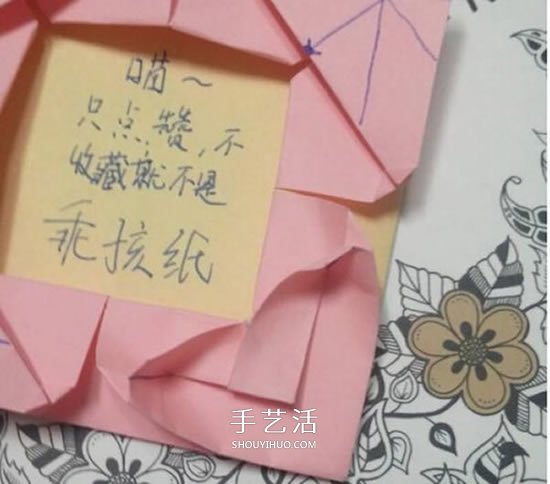 喵～
只点赞,不
收藏就不是
乖孩纸
手艺活
SHOUYIHUO.COM